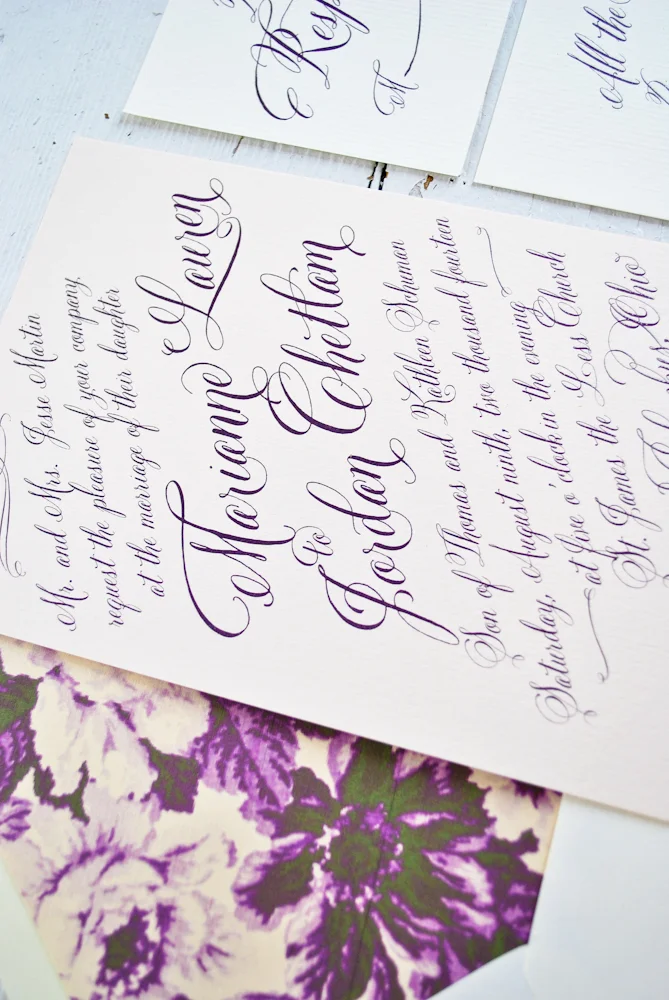 Resp
M
All the
Mr. and Mrs. Jesse Martin
request the pleasure of your company,
at the marriage of their daughter
Marianne Lauren
to
Jordan Chettam
Son of Thomas and Kathleen Schuman
Saturday, August ninth, two thousand fourteen
at five o'clock in the evening
St. James the Less Church
Ohio